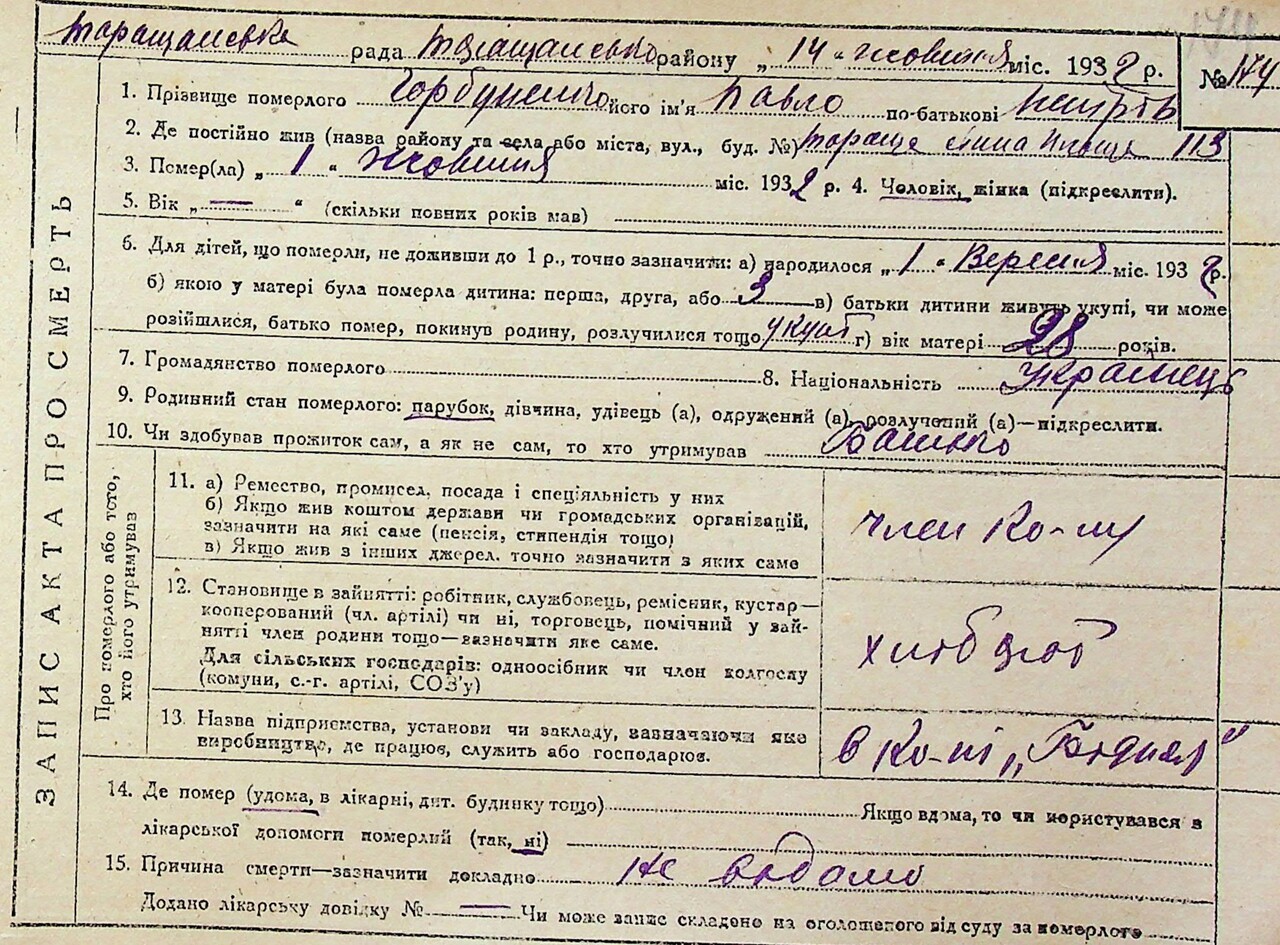 Таращанська рада Таращансько району „ 14 " жовтня міс. 1932 р.
№ 174
1. Прізвище померлого Горбуненко його ім'я Павло по-батькові Петров
2. Де постійно жив (назва району та села або міста, вул., буд. №) Тараща 113
3. Помер(ла) „ 1 " жовтня міс. 1932 р. 4. Чоловік, жінка (підкреслити).
5. Вік „ — " (скільки повних років мав)
6. Для дітей, що померли, не доживши до 1 р., точно зазначити: а) народилося „ 1 " Вересня міс. 1932 р.
б) якою у матері була померла дитина: перша, друга, або 3 в) батьки дитини живуть укупі, чи може
розійшлися, батько помер, покинув родину, розлучилися тощо укупі г) вік матері 28 років.
7. Громадянство померлого 8. Національність Українець
9. Родинний стан померлого: парубок, дівчина, удівець (а), одружений (а), розлучений (а)—підкреслити.
10. Чи здобував прожиток сам, а як не сам, то хто утримував Батько
ЗАПИС АКТА ПРО СМЕРТЬ
Про померлого або того,
хто його утримував
11. а) Ремество, промисел, посада і спеціяльність у них
б) Якщо жив коштом держави чи громадських організацій,
зазначити на які саме (пенсія, стипендія тощо)
в) Якщо жив з інших джерел, точно зазначити з яких саме
член ко-пу
12. Становище в зайнятті: робітник, службовець, ремісник, кустар—
кооперований (чл. артілі) чи ні, торговець, помічний у зай-
нятті член родини тощо—зазначити яке саме.
Для сільських господарів: одноосібник чи член колгоспу
(комуни, с.-г. артілі, СОЗ'у)
хлібороб
13. Назва підприємства, установи чи закладу, зазначаючи яке
виробництво, де працює, служить або господарює.
в Ко-пі „ "
14. Де помер (удома, в лікарні, дит. будинку тощо) Якщо вдома, то чи користувався з
лікарської допомоги померлий (так, ні)
15. Причина смерти—зазначити докладно не відомо
Додано лікарську довідку № — Чи може запис складено на оголошеного від суду за померлого